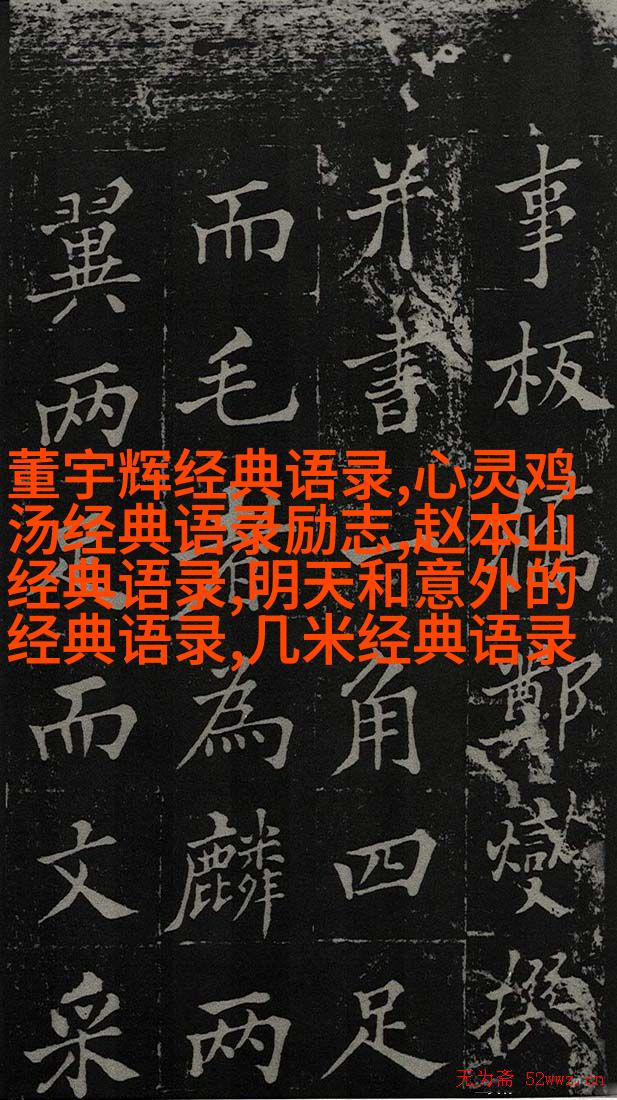 事板橋鄭燮撰
并書角四足
而毛者為麟两
翼两而文采
董宇辉经典语录,心灵鸡
汤经典语录励志,赵本山
经典语录,明天和意外的
经典语录,几米经典语录
无为斋 52wwz.cn